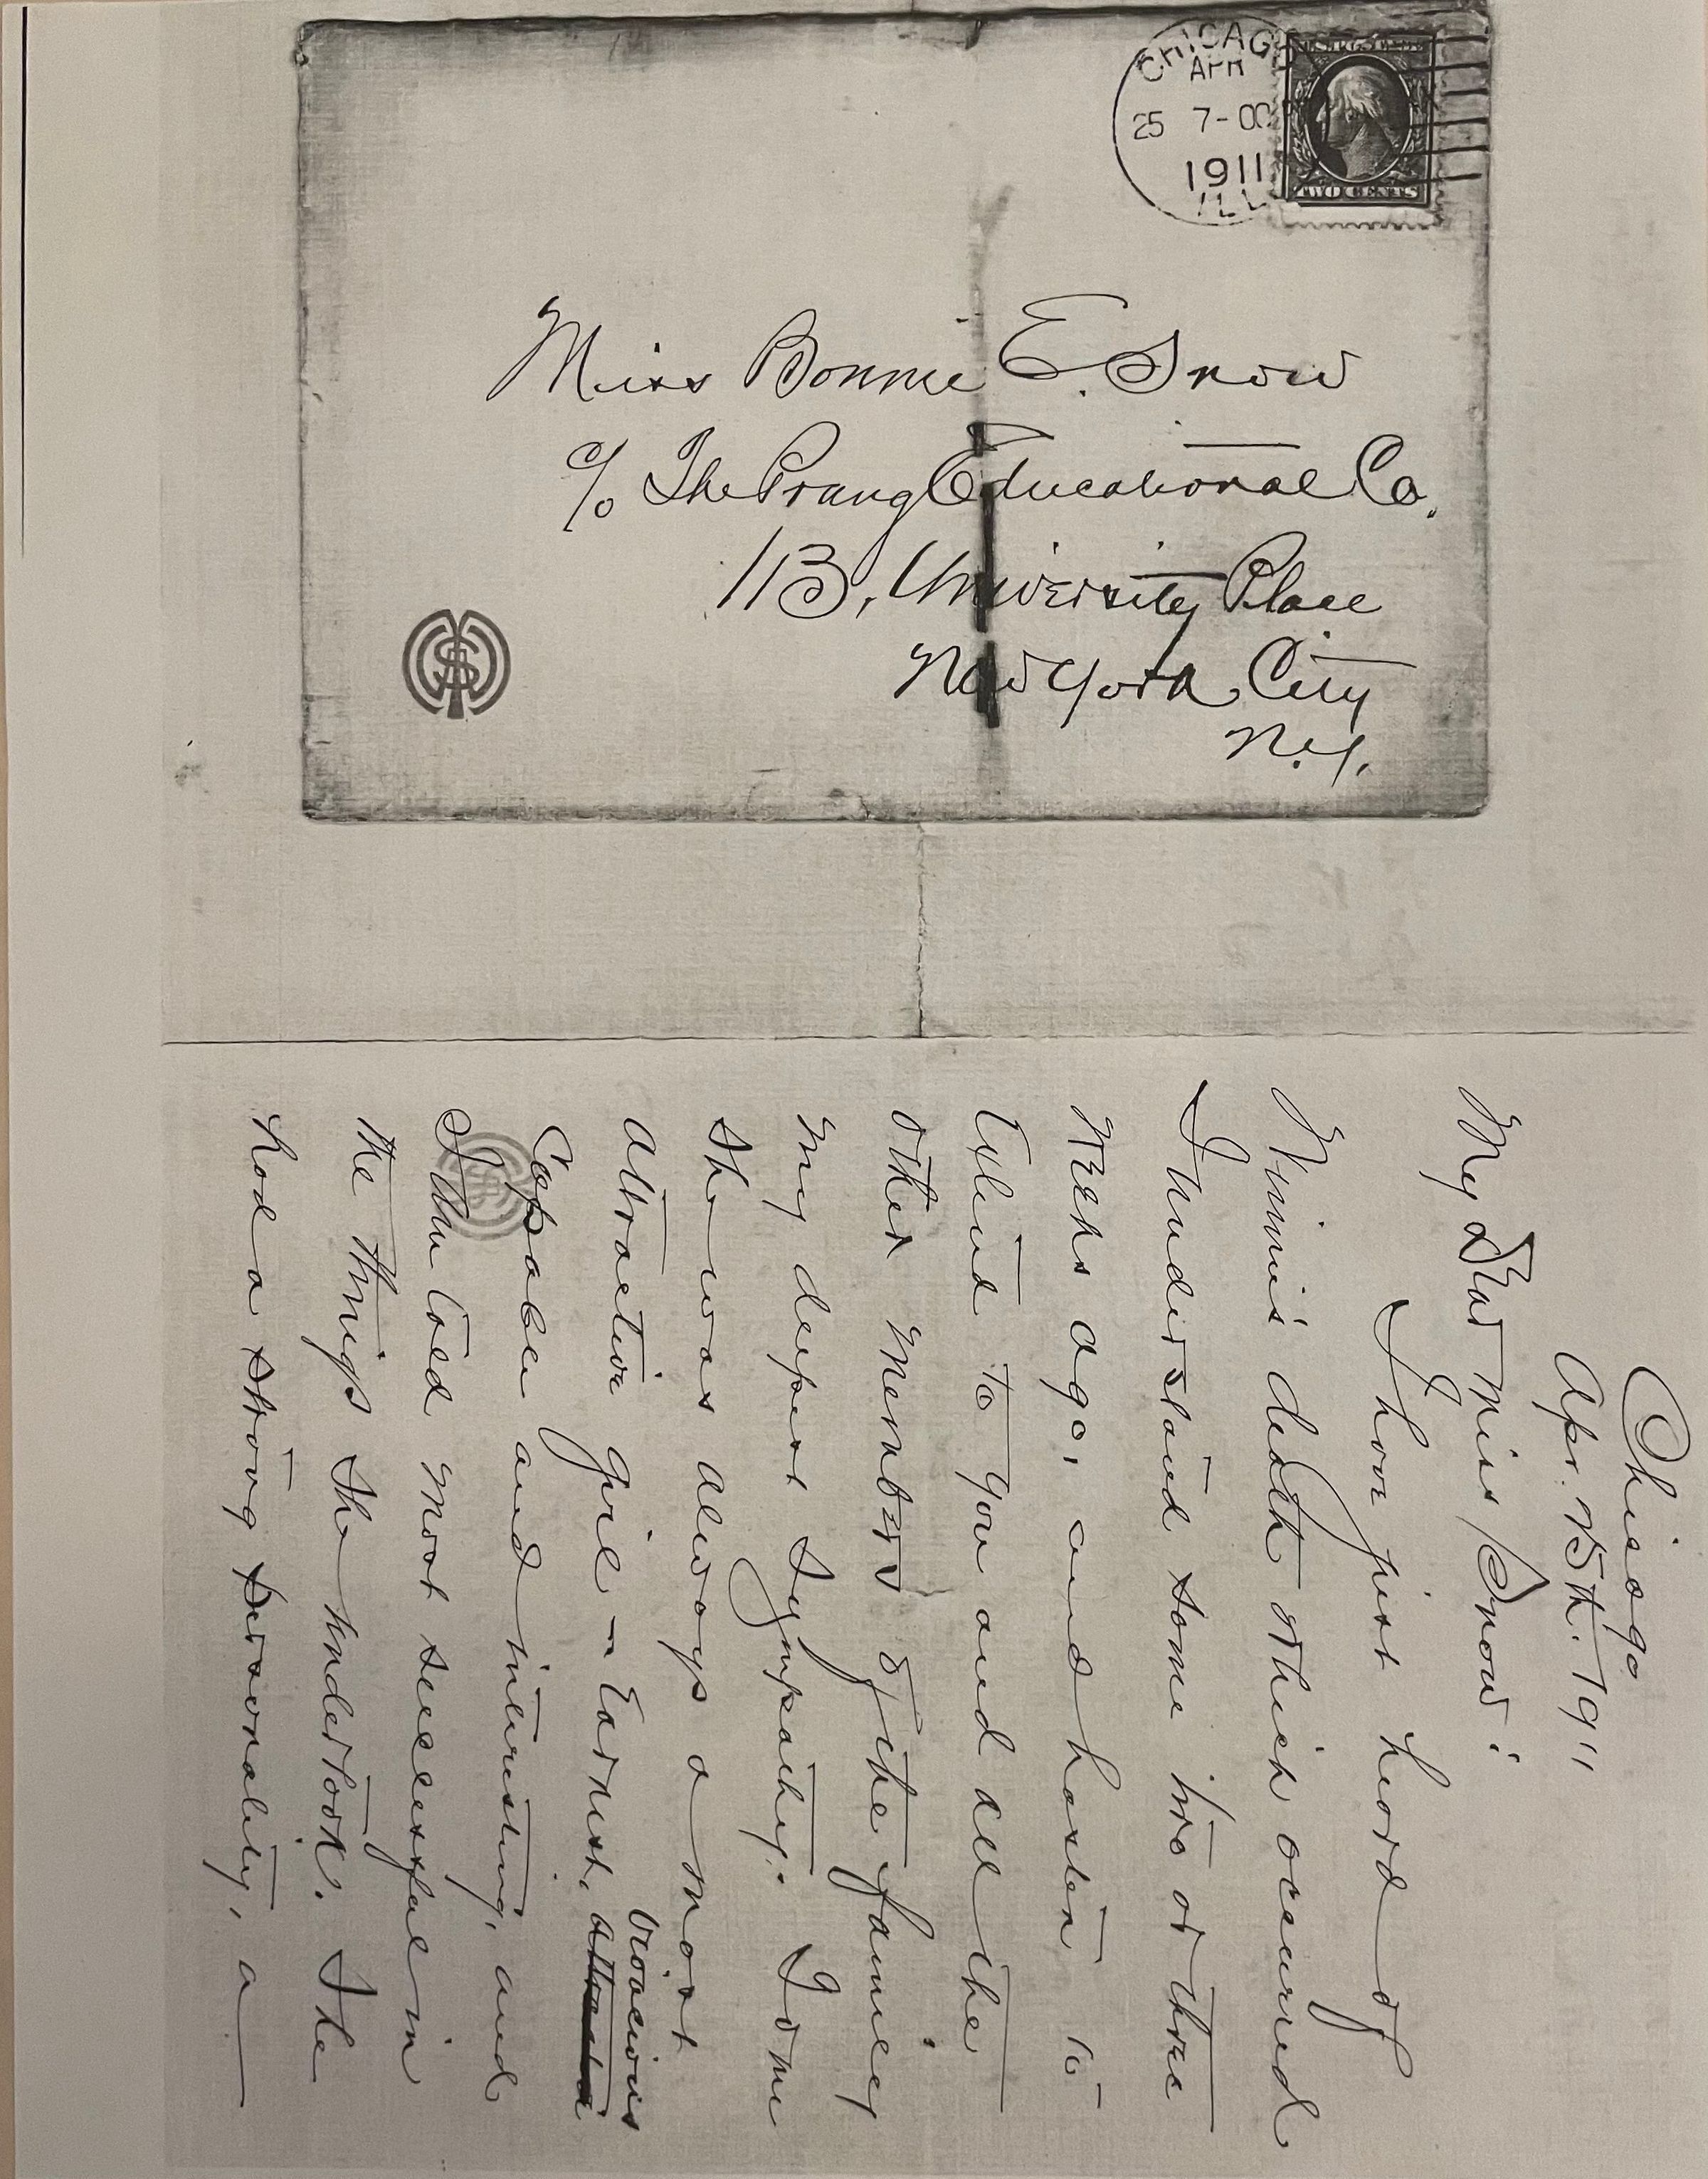 CHICAGO
APR
25 7-00
1911
ILL
TWO CENTS
Miss Bonnie E. Snow
c/o The Prang Educational Co.
113, University Place
New York City
N.Y.
Chicago
Apr. 25th. 1911
My Dear Miss Snow:
I have just heard of
Minnie's death which occurred
I understand some two or three
weeks ago, and hasten to
extend to you and all the
other members of the family
my deepest sympathy. To me
she was always a most
attractive girl – earnest, vivacious
capable and interesting, and
I am told most successful in
the things she undertook. She
had a strong personality, a